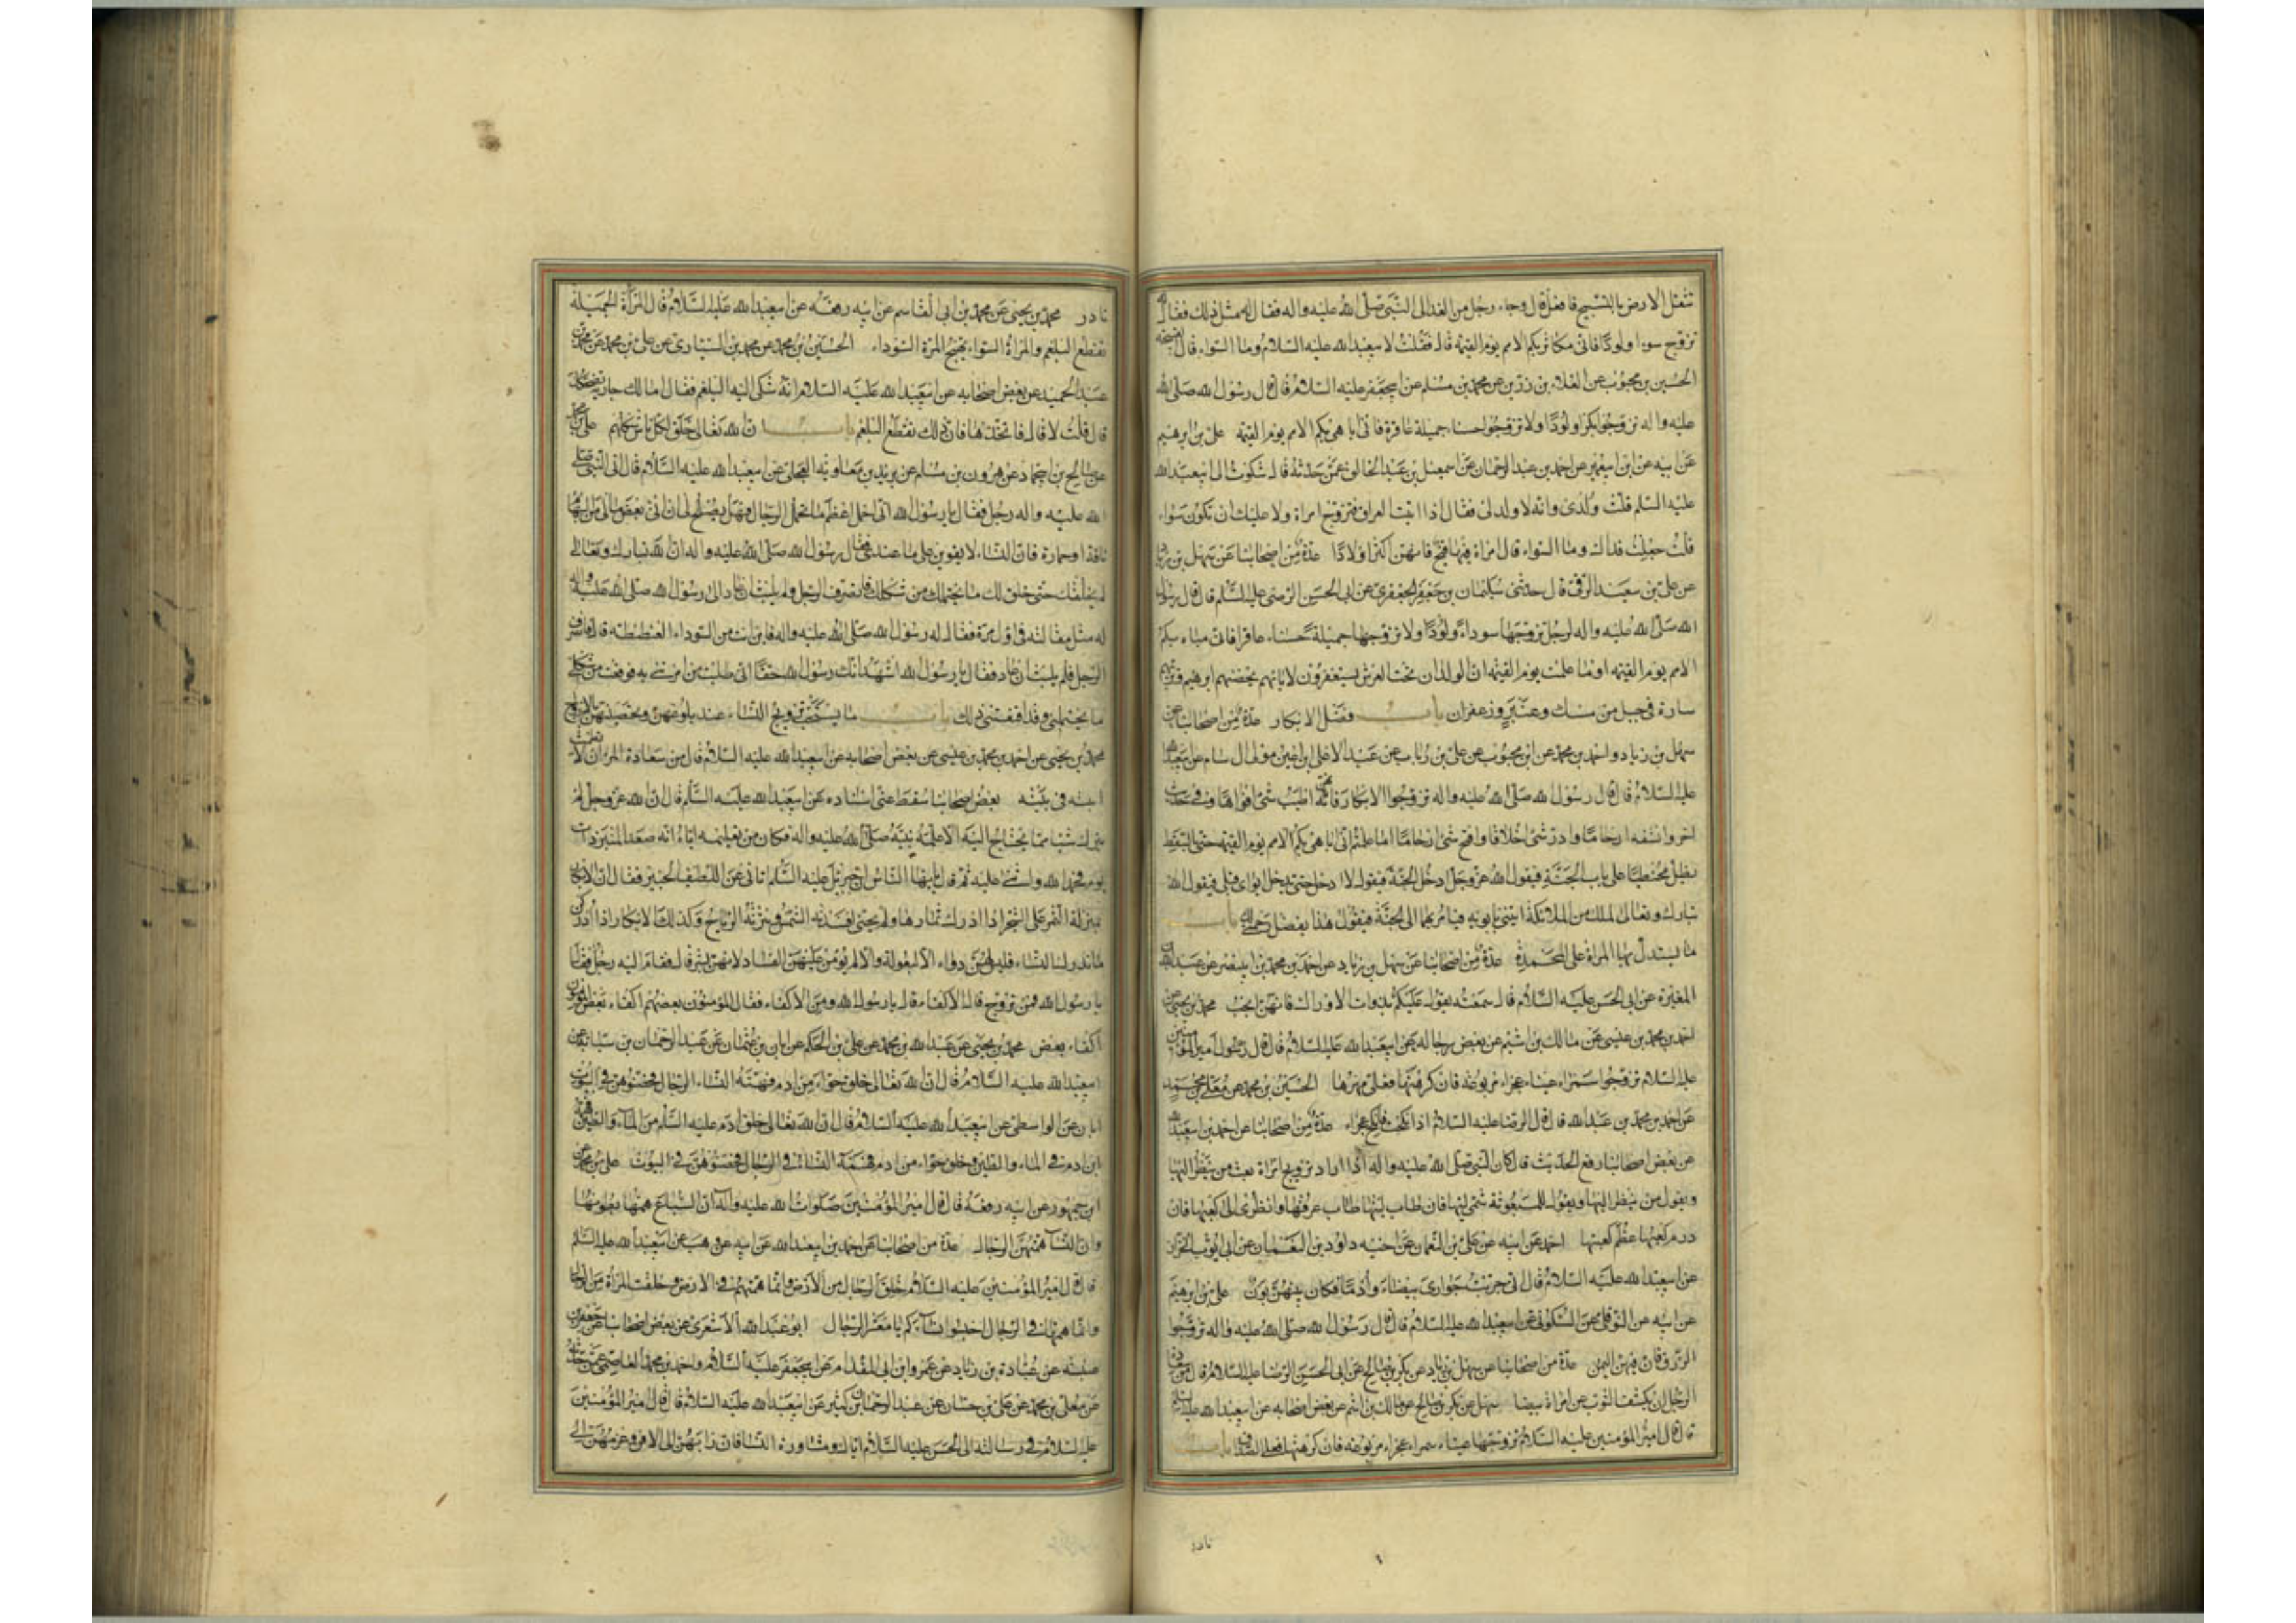 تثقل الارض بالتسبيح فافعل قال وجاء رجل من الغد الى النبى صلى الله عليه واله فقال له مثل ذلك فقال له
تزوج سوءا ولودا فانى مكاثر بكم الامم يوم القيمة قال فقلت لابيعبد الله عليه السلام وما السواء قال القبيحة
الحسين بن محبوب عن العلاء بن رزين عن محمد بن مسلم عن ابيجعفر عليه السلام قال قال رسول الله صلى الله
عليه واله تزوجوا بكرا ولودا ولا تزوجوا حسناء جميلة عاقرة فانى اباهى بكم الامم يوم القيمة على بن ابرهيم
عن ابيه عن ابن ابيعمير عن احمد بن عبد الرحمان عن اسمعيل بن عبد الخالق عمن حدثه قال شكوت الى ابيعبد الله
عليه السلم قلت ولدى وانه لا ولد لى فقال اذا اتيت العراق فتزوج امراة ولا عليك ان تكون سواء
قلت جعلت فداك وما السواء قال امراة فيها قبح فانهن اكثر اولادا عدة من اصحابنا عن سهل بن زياد
عن على بن سعيد الرقى قال حدثنى سليمان بن جعفر الجعفرى عن ابى الحسن الرضى عليه السلم قال قال رسول
الله صلى الله عليه واله لرجل تزوجها سوداء ولودا ولا تزوجها جميلة حسناء عاقرا فانى مباه بكم
الامم يوم القيمة اوما علمت يوم القيمة ان الولدان تحت العرش يستغفرون لابائهم يحضنهم ابرهيم وتربيهم
سارة فى جبل من مسك وعنبر وزعفران باب فضل الابكار عدة من اصحابنا عن
سهل بن زياد واحمد بن محمد عن ابن محبوب عن على بن رئاب عن عبد الاعلى بن اعين مولى ال سام عن ابيعبد الله
عليه السلام قال قال رسول الله صلى الله عليه واله تزوجوا الابكار فانهن اطيب شئ افواها وفى حديث
اخر وانشفه ارحاما وادر شئ اخلافا وافتح شئ ارحاما اما علمتم انى اباهى بكم الامم يوم القيمة حتى بالسقط
يظل محبنطيا على باب الجنة فيقول الله عز وجل ادخل الجنة فيقول لا ادخل حتى يدخل ابواى قبلى فيقول الله
تبارك وتعالى لملك من الملائكة ايتنى بابويه فيامر بهما الى الجنة فيقول هذا بفضل رحمتى لك باب
ما يستدل بها المراة على المحمدة عدة من اصحابنا عن سهل بن زياد عن احمد بن محمد بن ابينصر عن عبد الله بن
المغيرة عن ابى الحسن عليه السلام قال سمعته يقول عليكم بذوات الاوراك فانهن انجب محمد بن يحيى عن
احمد بن محمد بن عيسى عن مالك بن اشيم عن بعض رجاله عن ابيعبد الله عليه السلام قال قال رسول امير المؤمنين
عليه السلام تزوجوا سمراء عيناء عجزاء مربوعة فان كرهتها فعلى مهرها الحسين بن محمد عن معلى بن محمد
عن احمد بن محمد بن عبد الله قال قال الرضا عليه السلام اذا نكحت فانكح عجزاء عدة من اصحابنا عن احمد بن ابيعبد الله
عن بعض اصحابنا رفع الحديث قال كان النبى صلى الله عليه واله اذا اراد تزويج امراة بعث من ينظر اليها
ويقول من ينظر اليها ويقول للمبعوثة شمى ليتها فان طاب ليتها طاب عرفها وانظرى الى كعبها فان
درم كعبها عظم كعبثها احمد عن ابيه عن على بن النعمان عن اخيه داود بن النعمان عن ابى ايوب الخزاز
عن ابيعبد الله عليه السلام قال انى جربت جوارى بيضاء وادماء فكان بينهن بون على بن ابرهيم
عن ابيه عن النوفلى عن السكونى عن ابيعبد الله عليه السلام قال قال رسول الله صلى الله عليه واله تزوجوا
الزرق فان فيهن اليمن عدة من اصحابنا عن سهل بن زياد عن بكر بن صالح عن ابى الحسين الرضا عليه السلام قال من سعادة
الرجل ان يكشف الثوب عن امراة بيضا سهل عن بكر بن صالح عن مالك بن اشيم عن بعض اصحابه عن ابيعبد الله عليه السلم
قال قال امير المؤمنين عليه السلام تزوجها عيناء سمراء عجزاء مربوعة فان كرهتها فعلى الصداق باب
نادر
نادر محمد بن يحيى عن محمد بن ابى القاسم عن ابيه رفعه عن ابيعبد الله عليه السلام قال المراة الجميلة
تقطع البلغم والمراة السواء تهيج المرة السوداء الحسين بن محمد عن محمد بن السيارى عن على بن محمد عن محمد بن
عبد الحميد عن بعض اصحابه عن ابيعبد الله عليه السلام انه شكى اليه البلغم فقال اما لك جارية تضحكك
قال قلت لا قال فاتخذها فان ذلك يقطع البلغم باب ان الله تعالى خلق لكل ناس شكلهم على بن محمد
عن صالح بن ابيحماد عن هرون بن مسلم عن بريد بن معاوية العجلى عن ابيعبد الله عليه السلام قال اتى النبى صلى
الله عليه واله رجل فقال يا رسول الله انى احمل اعظم ما تحمل الرجال فهل يصلح لى ان اتى بعض مالى من البهائم
ناقة او حمارة فان النساء لا يقوين على ما عندى فقال رسول الله صلى الله عليه واله ان الله تبارك وتعالى
لم يخلقك حتى خلق لك ما يحتملك من شكلك فانصرف الرجل ولم يلبث ان عاد الى رسول الله صلى الله عليه واله
له مثل مقالته فى اول مرة فقال له رسول الله صلى الله عليه واله فاين انت من السوداء العنطنطة قال فانصرف
الرجل فلم يلبث ان عاد فقال يا رسول الله اشهد انك رسول الله حقا انى طلبت من امرتنى به فوقعت من شكلى
ما يحتملنى وقد اقنعنى ذلك باب ما يستحب من تزويج النساء عند بلوغهن وتحصينهن بالازواج
محمد بن يحيى عن احمد بن محمد بن عيسى عن بعض اصحابه عن ابيعبد الله عليه السلام قال من سعادة المرء ان لا تطمث
ابنته فى بيته بعض اصحابنا سقط عنى اسناده عن ابيعبد الله عليه السلم قال ان الله عز وجل لم
يترك شيئا مما يحتاج اليه الا علمه نبيه صلى الله عليه واله فكان من تعليمه اياه انه صعد المنبر ذات
يوم فحمد الله واثنى عليه ثم قال ايها الناس ان جبرئيل عليه السلم اتانى عن اللطيف الخبير فقال ان الابكار
بمنزلة الثمر على الشجر اذا ادرك ثمارها ولم يجتنى افسدته الشمس ونثرته الرياح وكذلك الابكار اذا ادركن
ما تدرك النساء فليس لهن دواء الا البعولة والا لم يؤمن عليهن الفساد لانهن بشر قال فقام اليه رجل فقال
يا رسول الله فمن تزوج قال الاكفاء قال يا رسول الله ومن الاكفاء فقال المؤمنون بعضهم اكفاء بعض المؤمنون
اكفاء بعض محمد بن يحيى عن عبد الله بن محمد عن على بن الحكم عن ابان بن عثمان عن عبد الرحمان بن سيابة عن
ابيعبد الله عليه السلام قال ان الله تعالى خلق حواء من ادم فهمة النساء الرجال فحصنوهن فى البيوت
ابان عن الواسطى عن ابيعبد الله عليه السلام قال ان الله تعالى خلق ادم عليه السلم من الماء والطين فهمة
ابن ادم فى الماء والطين وخلق حواء من ادم فهمة النساء فى الرجال فحصنوهن فى البيوت على بن محمد عن
ابن جمهور عن ابيه رفعه قال قال امير المؤمنين صلوات الله عليه واله ان السباع همها بطونها
وان النساء همهن الرجال عدة من اصحابنا عن احمد بن ابيعبد الله عن ابيه عن وهب عن ابيعبد الله عليه السلم
قال قال امير المؤمنين عليه السلام خلق الرجال من الارض وانما همهم فى الارض وخلقت المراة من الرجال
وانما همها فى الرجال احبسوا نساءكم يا معشر الرجال ابو عبد الله الاشعرى عن بعض اصحابنا عن جعفر بن
عنبسة عن عبادة بن زياد عن عمرو ابن ابى المقدام عن ابيجعفر عليه السلام واحمد بن محمد العاصمى عمن حدثه
عن معلى بن محمد عن على بن حسان عن عبد الرحمان بن كثير عن ابيعبد الله عليه السلام قال قال امير المؤمنين
عليه السلام فى رسالته الى الحسن عليه السلام اياك ومشاورة النساء فان رايهن الى الافن وعزمهن الى